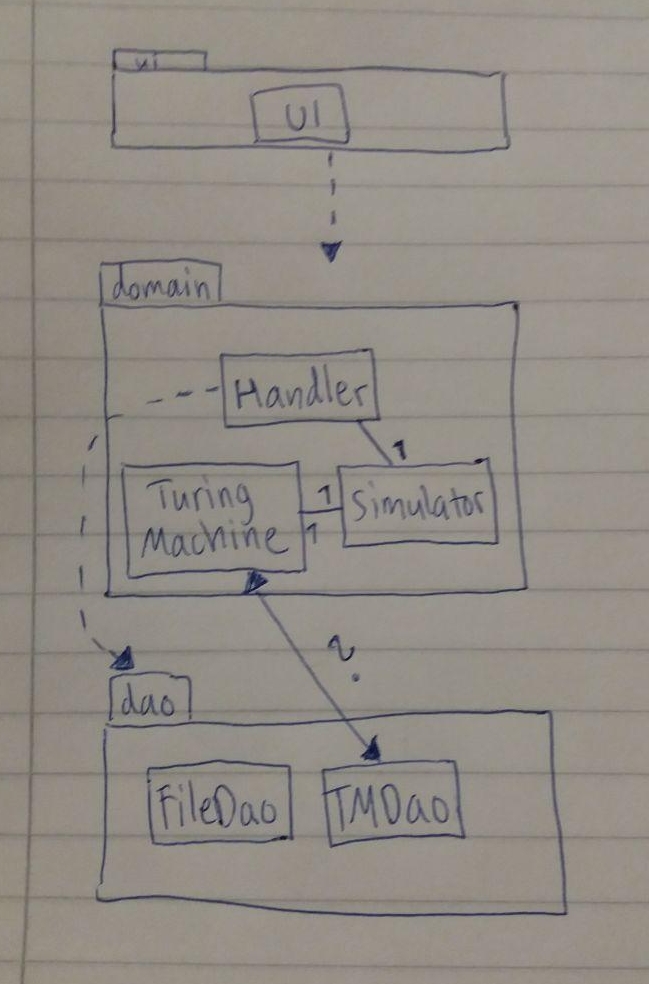 ui
UI
domain
Handler
1
Turing
Machine
1
1
Simulator
?
dao
FileDao
TMDao